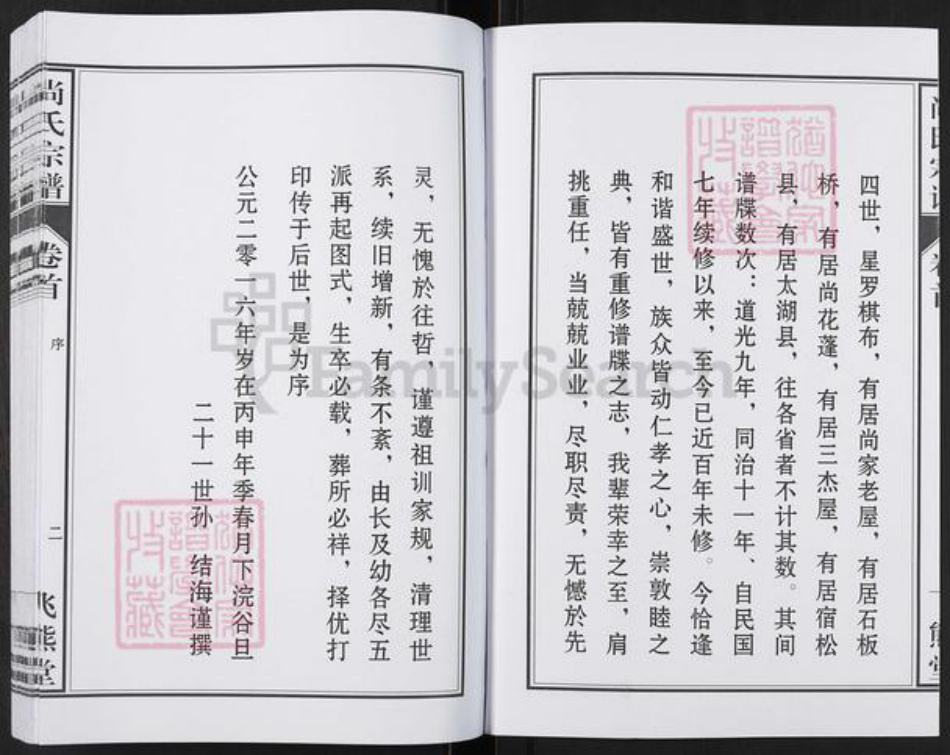 四世，星罗棋布，有居尚家老屋，有居石板
桥，有居尚花蓬，有居三杰屋，有居宿松
县，有居太湖县，往各省者不计其数。其间
谱牒数次：道光九年，同治十一年、自民国
七年续修以来，至今已近百年未修。今恰逢
和谐盛世，族众皆动仁孝之心，崇敦睦之
典，皆有重修谱牒之志，我辈荣幸之至，肩
挑重任，当兢兢业业，尽职尽责，无憾於先
灵，无愧於往哲，谨遵祖训家规，清理世
系，续旧增新，有条不紊，由长及幼各尽五
派再起图式，生卒必载，葬所必祥，择优打
印传于后世，是为序
公元二零一六年岁在丙申年季春月下浣谷旦
二十一世孙 结海谨撰
尚氏宗谱
卷首
序
二
兆熊堂
FamilySearch
收藏